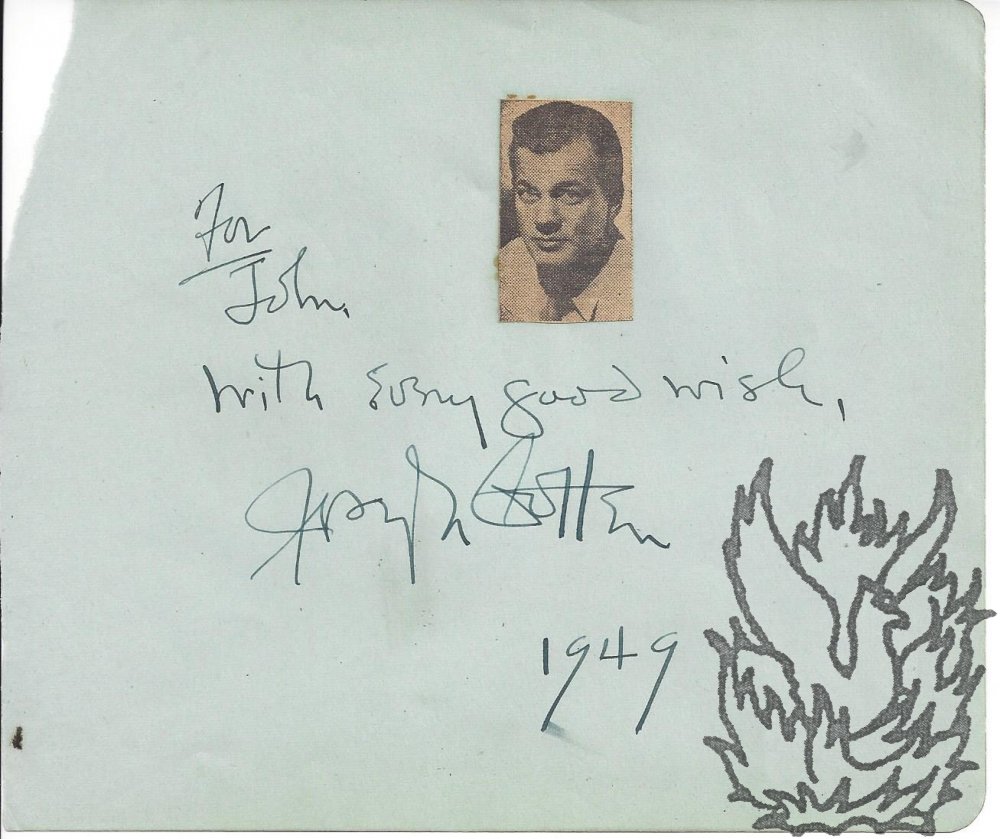 For
John,
with every good wish,
Joseph Cotten
1949